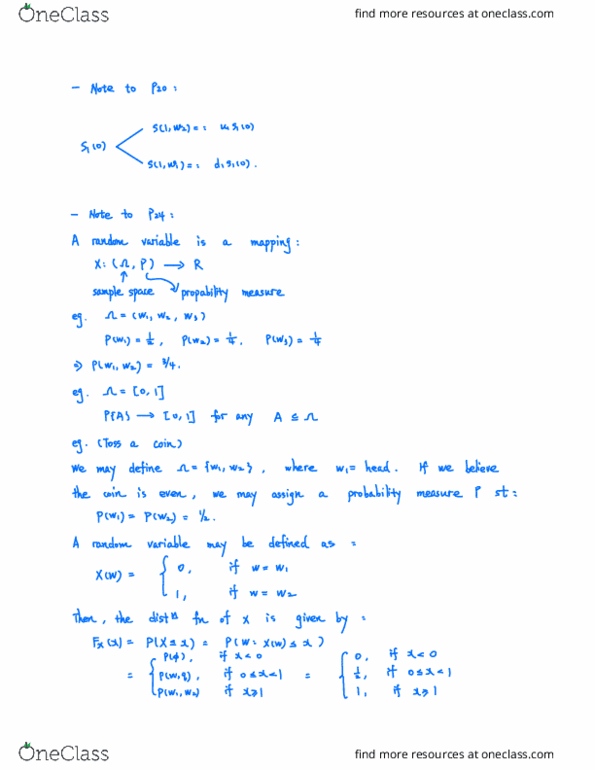 OneClass
find more resources at oneclass.com
- Note to P20 :
S(1, w2) = : u, S1(0)
S1(0)
S(1, w1) = : d, S1(0).
- Note to P24 :
A random variable is a mapping :
X : (Ω, P) → R
sample space propability measure
eg. Ω = (w1, w2, w3)
P(w1) = 1/2, P(w2) = 1/4, P(w3) = 1/4
⇒ P(w1, w2) = 3/4.
eg. Ω = [0, 1]
P{A} → [0, 1] for any A ⊆ Ω
eg. (Toss a coin)
We may define Ω = {w1, w2}, where w1 = head. If we believe
the coin is even, we may assign a probability measure P st :
P(w1) = P(w2) = 1/2.
A random variable may be defined as :
X(w) = { 0, if w = w1
1, if w = w2
Then, the distn fn of X is given by :
Fx(x) = P(X ≤ x) = P(w : X(w) ≤ x)
= { P(ϕ), if x < 0 = { 0, if x < 0
P(w1), if 0 ≤ x < 1 1/2, if 0 ≤ x < 1
P(w1, w2) if x ≥ 1 1, if x ≥ 1
OneClass
find more resources at oneclass.com